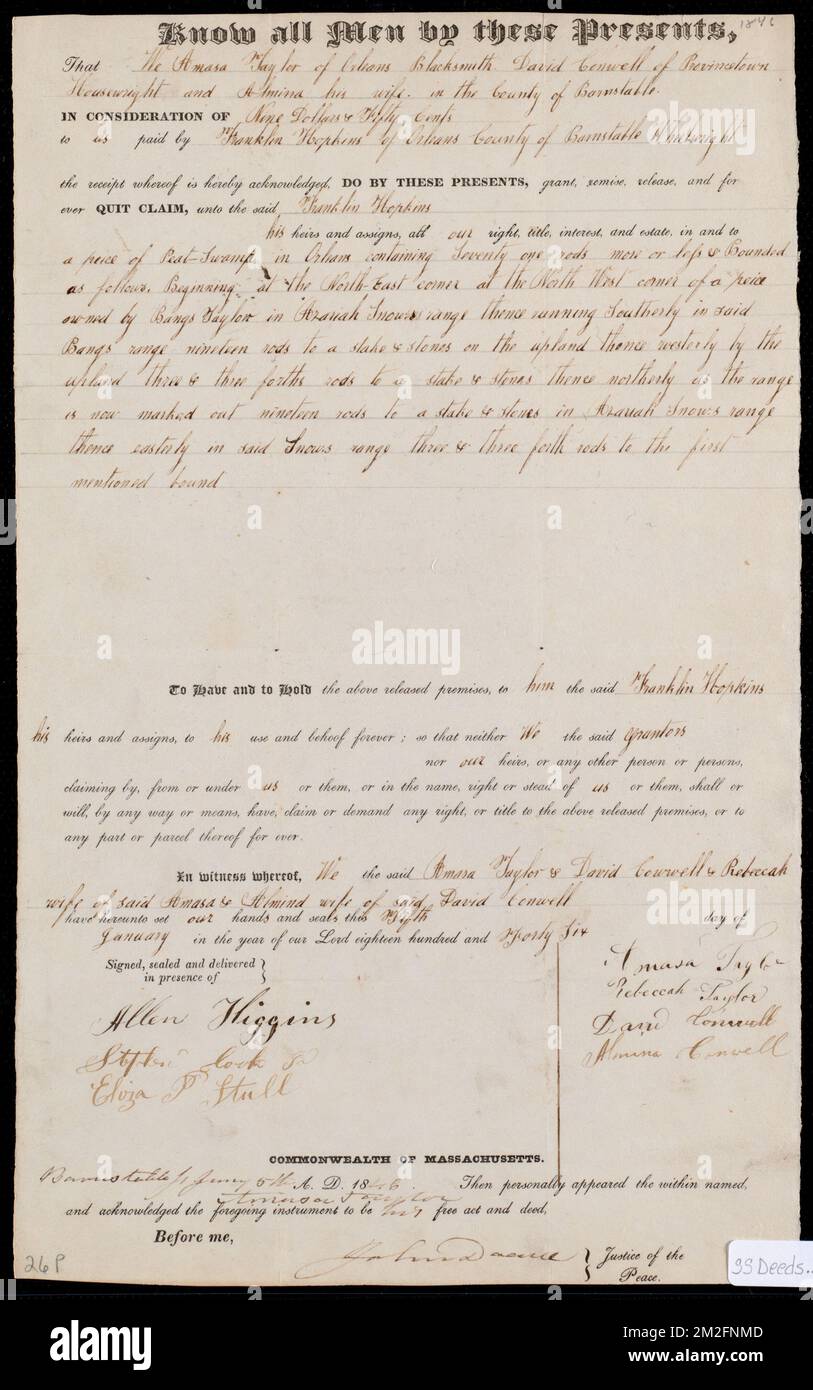 1846
Know all Men by these Presents,
That We Amasa Taylor of Orleans Blacksmith David Conwell of Provincetown
Housewright and Almina his wife. in the County of Barnstable.
IN CONSIDERATION OF Nine Dollars & Fifty Cents
to us paid by Franklin Hopkins of Orleans County of Barnstable Wheelwright
the receipt whereof is hereby acknowledged, DO BY THESE PRESENTS, grant, remise, release, and for
ever QUIT CLAIM, unto the said Franklin Hopkins
his heirs and assigns, all our right, title, interest, and estate, in and to
a peice of Peat-Swamp in Orleans containing Seventy one rods more or less & Bounded
as follows. Beginning at the North-East corner at the North West corner of a peice
owned by Bangs Taylor in Azariah Snows range thence running Southerly in said
Bangs range nineteen rods to a stake & stones on the upland thence westerly by the
upland three & three forths rods to a stake & stones thence northerly as the range
is now marked out nineteen rods to a stake & stones in Azariah Snows range
thence easterly in said Snows range three & three forth rods to the first
mentioned bound
To Have and to Hold the above released premises, to him the said Franklin Hopkins
his heirs and assigns, to his use and behoof forever ; so that neither We the said grantors
nor our heirs, or any other person or persons,
claiming by, from or under us or them, or in the name, right or stead of us or them, shall or
will, by any way or means, have, claim or demand any right, or title to the above released premises, or to
any part or parcel thereof for ever.
In witness whereof, We the said Amasa Taylor & David Conwell & Rebeccah
wife of said Amasa & Almind wife of said David Conwell
have hereunto set our hands and seals this Fifth day of
January in the year of our Lord eighteen hundred and Forty Six
Signed, sealed and delivered
in presence of
Amasa Taylor
Rebeccah Taylor
David Conwell
Almina Conwell
Allen Higgins
Stephen Cook
Eliza P Stull
COMMONWEALTH OF MASSACHUSETTS.
Barnstable ss 5th A. D. 1846. Then personally appeared the within named,
Amasa Taylor
and acknowledged the foregoing instrument to be his free act and deed,
Before me,
John Doane
Justice of the
Peace.
26P
SSDeeds..
alamy
alamy
Image ID: 2M2FNMD
www.alamy.com